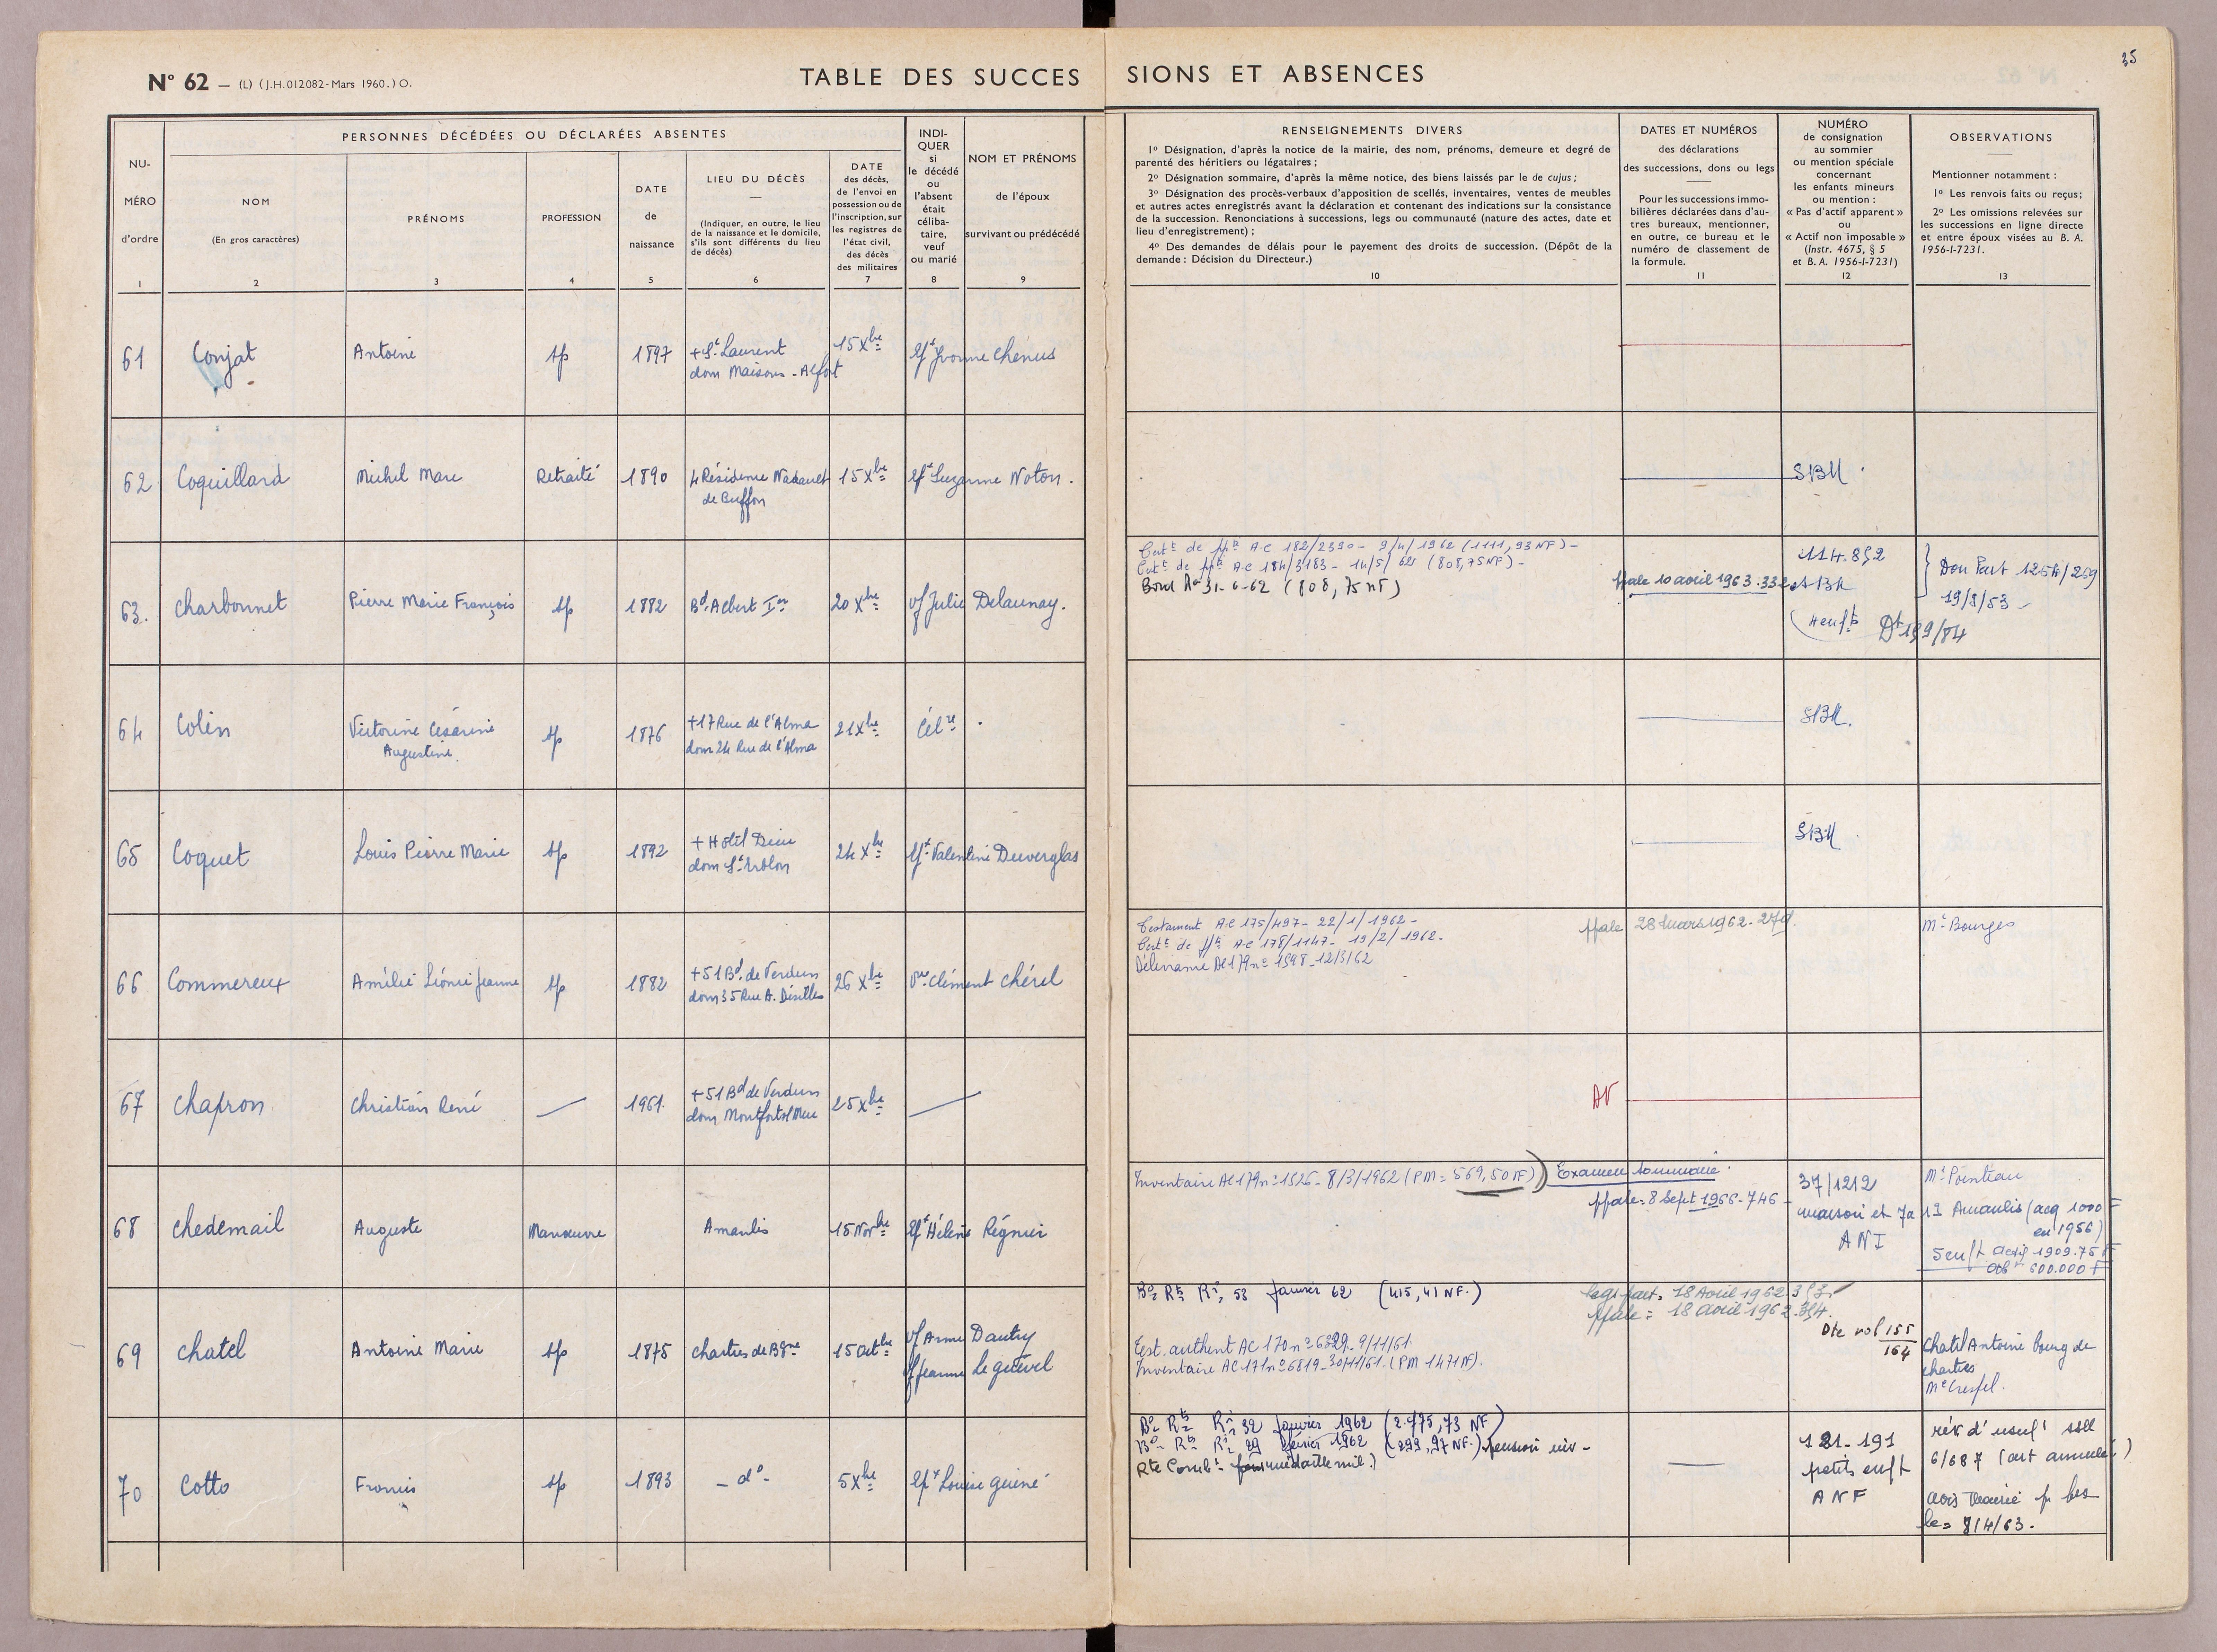 35
N° 62 — (L) (J.H. 012082 - Mars 1960.) O.
TABLE DES SUCCES SIONS ET ABSENCES
NU-
MÉRO
d'ordre
1
PERSONNES DÉCÉDÉES OU DÉCLARÉES ABSENTES
NOM
(En gros caractères)
2
PRÉNOMS
3
PROFESSION
4
DATE
de
naissance
5
LIEU DU DÉCÈS
(Indiquer, en outre, le lieu
de la naissance et le domicile,
s'ils sont différents du lieu
de décès)
6
DATE
des décès,
de l'envoi en
possession ou de
l'inscription, sur
les registres de
l'état civil,
des décès
des militaires
7
INDI-
QUER
si
le décédé
ou
l'absent
était
céliba-
taire,
veuf
ou marié
8
NOM ET PRÉNOMS
de l'époux
survivant ou prédécédé
9
RENSEIGNEMENTS DIVERS
1° Désignation, d'après la notice de la mairie, des nom, prénoms, demeure et degré de
parenté des héritiers ou légataires ;
2° Désignation sommaire, d'après la même notice, des biens laissés par le de cujus ;
3° Désignation des procès-verbaux d'apposition de scellés, inventaires, ventes de meubles
et autres actes enregistrés avant la déclaration et contenant des indications sur la consistance
de la succession. Renonciations à successions, legs ou communauté (nature des actes, date et
lieu d'enregistrement) ;
4° Des demandes de délais pour le payement des droits de succession. (Dépôt de la
demande : Décision du Directeur.)
10
DATES ET NUMÉROS
des déclarations
des successions, dons ou legs
Pour les successions immo-
bilières déclarées dans d'au-
tres bureaux, mentionner,
en outre, ce bureau et le
numéro de classement de
la formule.
11
NUMÉRO
de consignation
au sommier
ou mention spéciale
concernant
les enfants mineurs
ou mention :
« Pas d'actif apparent »
ou
« Actif non imposable »
(Instr. 4675, § 5
et B. A. 1956-I-7231)
12
OBSERVATIONS
Mentionner notamment :
1° Les renvois faits ou reçus ;
2° Les omissions relevées sur
les successions en ligne directe
et entre époux visées au B. A.
1956-I-7231.
13
61 Conjat Antoine sp 1897 + St Laurent 15 Xbre Ept Yvonne Chenus
dom Maisons-Alfort
62 Coquillard Michel Marc Retraité 1890 4 Résidence Nadault 15 Xbre Ept Suzanne Noton. SBM
de Buffon
63. Charbonnet Pierre Marie François sp 1882 Bd Albert Ier 20 Xbre vf Julie Delaunay.
AC 182/2390 - 9/4/1962 (1111,93 NF) -
AC 184/3183 - 14/5/62 (808,75 NF) -
31-6-62 (808,75 NF)
ppale 10 avril 1963.332
Don Part 1254/259
19/8/53
64 Colin Victorine Césarine sp 1876 + 17 Rue de l'Alma 21 Xbre Célre SBM.
Augustine. dom 24 Rue de l'Alma
65 Coquet Louis Pierre Marie sp 1892 + Hôtel Dieu 24 Xbre Ept Valentine Duverglas SBM
dom St Erblon
66 Commereux Amélie Léonie Jeanne sp 1882 + 51 Bd de Verdun 26 Xbre Vve Clément Chérel
dom 35 Rue A. Désilles
Testament AC 175/497 - 22/1/1962 -
AC 178/1147 - 19/2/1962 -
Délivrance AC 179 n° 1598 - 12/3/62
ppale 28 Mars 1962 - 279.
Me Bourges
67 Chapron Christian René 1961 + 51 Bd de Verdun 25 Xbre
dom Montfort s/ Meu
68 Chedemail Auguste Manœuvre Amanlis 15 Nvbre Ept Hélène Régnier
Inventaire AC 179 n° 1526 - 8/3/1962 (PM = 569,50 NF) Examen sommaire.
ppale = 8 Sept 1966 - 746
37/1212
maison et 7a
ANI
Me Pointeau
Amanlis (acq 1000 F
en 1956)
5 enft actif 1909.75 F
600.000 F
69 Chatel Antoine Marie sp 1875 Chartres de Bgne 15 octbre vf Anne Dautry
vf Jeanne Le guével
53 Janvier 62 (415,41 NF.)
Test. authent AC 170 n° 6329 - 9/11/61.
Inventaire AC 171 n° 6819 - 30/11/61. (PM 1471 NF).
18 Avril 1962 353
ppale = 18 avril 1962.354.
Dte vol 155
164
Chatel Antoine bourg de
chartres
Me Crespel.
70 Cotto Francis sp 1893 - d° - 5 Xbre Ept Louise Guiné
Janvier 1962 (2.475,73 NF)
29 février 1962 (299,97 NF.) pension viv -
Rte Combt
121-191
petits enft
ANF
rév d'usuft
6/687 (art annulé)
avis mairie
le 8/4/63.